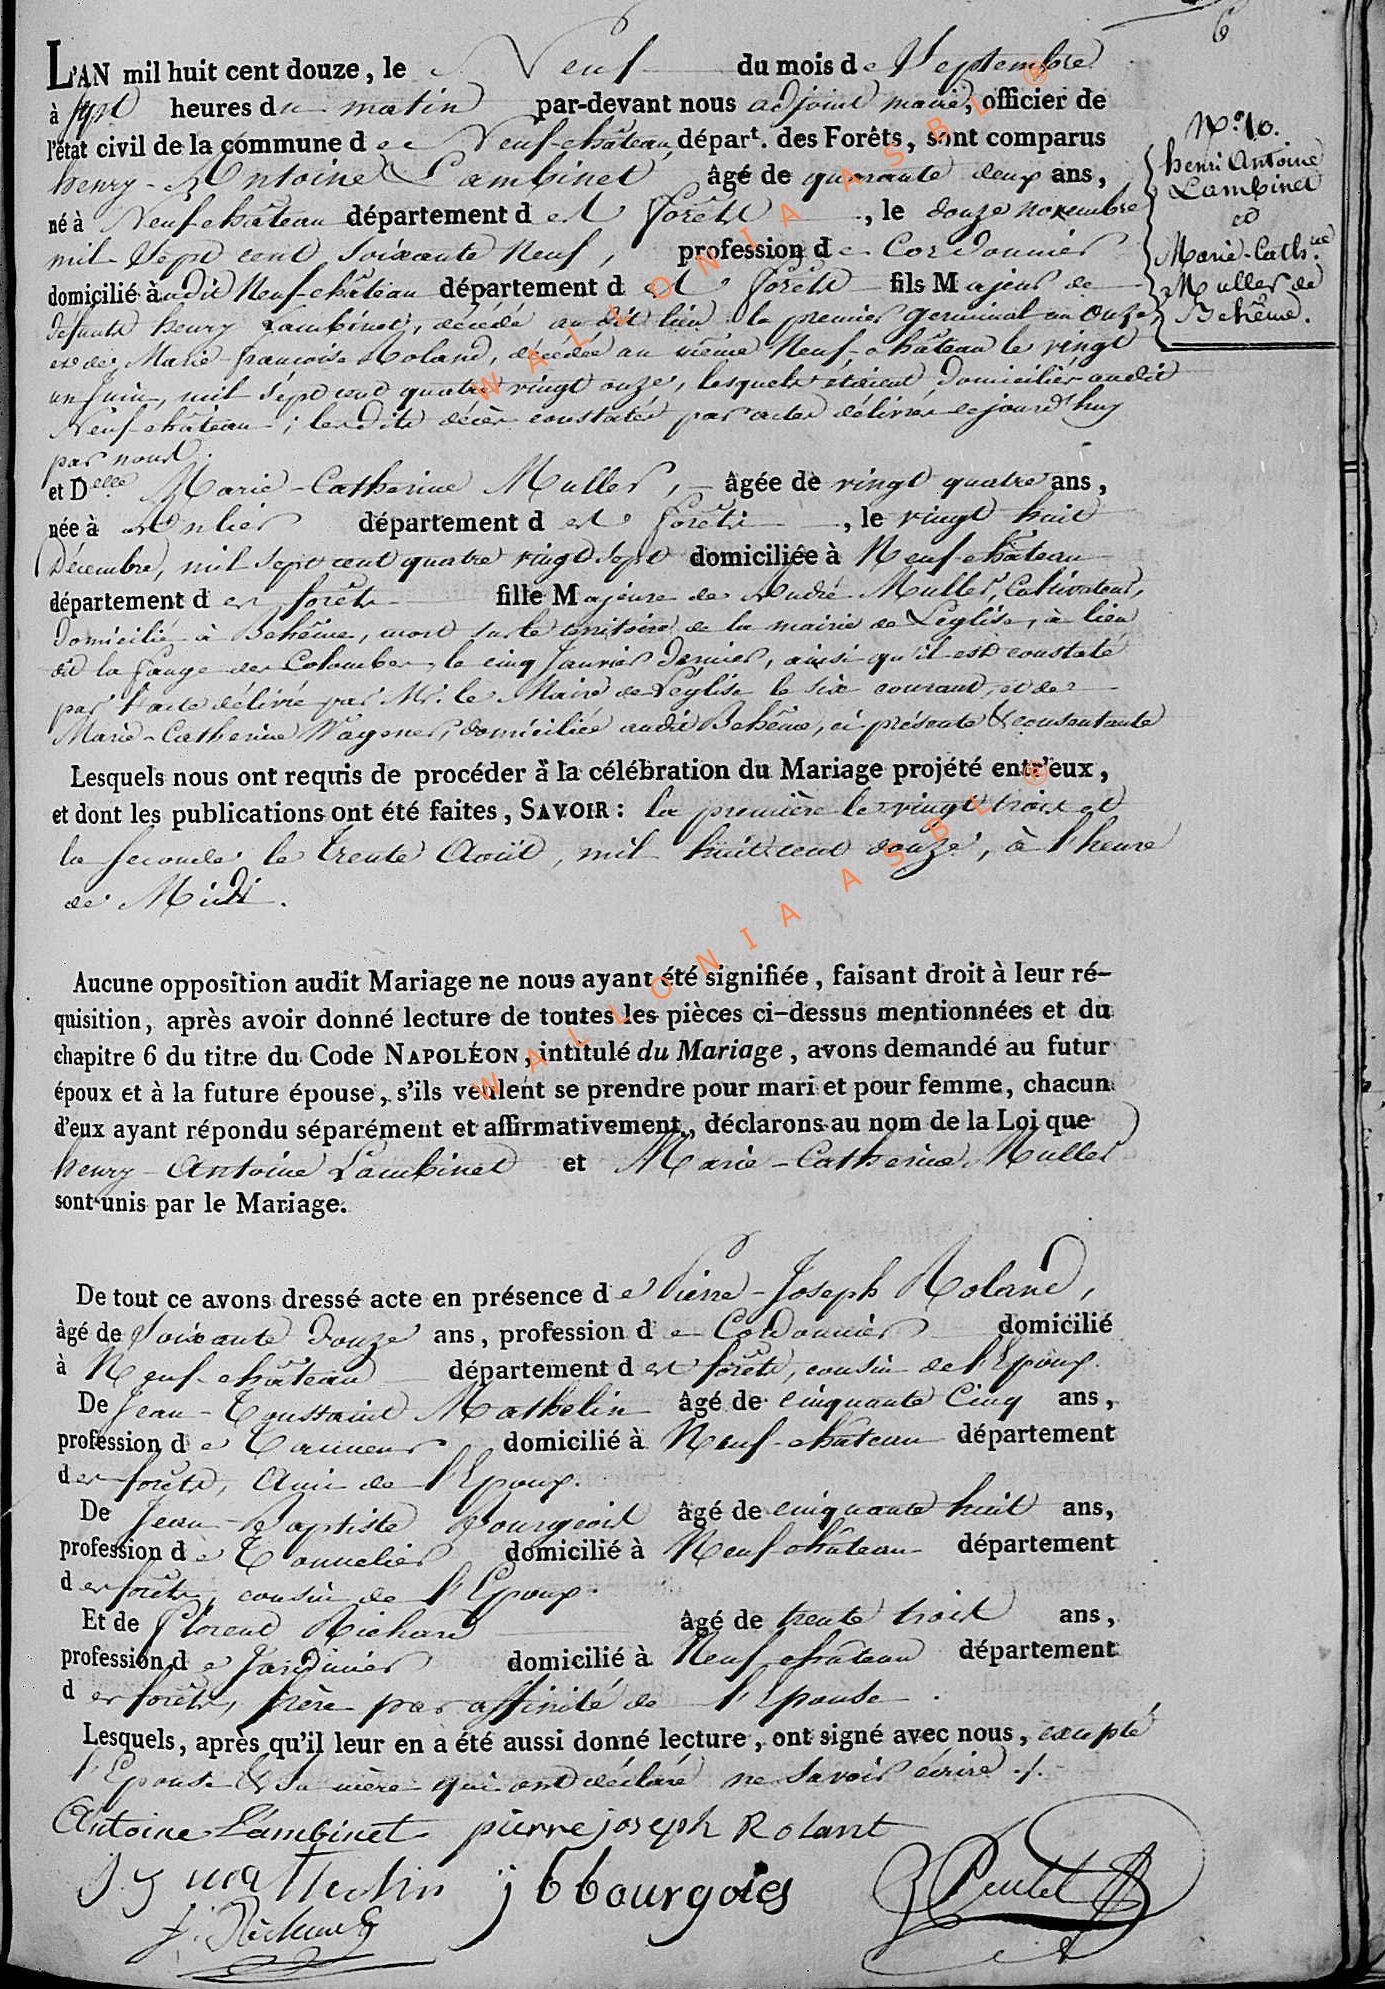 6
L'AN mil huit cent douze, le Neuf du mois de Septembre
à sept heures du matin par-devant nous adjoint maire, officier de
l'état civil de la commune de Neufchâteau, départ. des Forêts, sont comparus
henry-Antoine Lambinet âgé de quarante deux ans,
né à Neufchâteau département des forêts, le douze novembre
mil Sept cent soixante Neuf, profession de Cordonnier
domicilié audit Neufchâteau département des forêts fils Majeur de
défunts henry Lambinet, décédé audit lieu le premier germinal an Onze
et de Marie-françoise Roland, décédée au même Neufchâteau le vingt
un Juin, mil sept cent quatre vingt onze, lesquels étoient domiciliés audit
Neufchâteau; lesdits décès constatés par actes délivrés cejourd'huy
par nous.
et Delle Marie-Catherine Muller, âgée de vingt quatre ans,
née à Anlier département des forêts, le vingt huit
Décembre, mil sept cent quatre vingt sept domiciliée à Neufchâteau
département des forêts fille Majeure de André Muller, Cultivateur,
domicilié à Behême, mort sur le territoire de la mairie de Leglise, à lieu
dit la fange des Colombes, le cinq Janvier dernier, ainsi qu'il est constaté
par l'acte délivré par Mr. le Maire de Leglise le six courant, et de
Marie-Catherine Wagener, domiciliée audit Behême, ci présente & consentante
Lesquels nous ont requis de procéder à la célébration du Mariage projété entr'eux,
et dont les publications ont été faites, SAVOIR: la première le vingt trois et
la seconde le trente Août, mil huit cent douze, à l'heure
de Midi.
Aucune opposition audit Mariage ne nous ayant été signifiée, faisant droit à leur ré-
quisition, après avoir donné lecture de toutes les pièces ci-dessus mentionnées et du
chapitre 6 du titre du Code NAPOLÉON, intitulé du Mariage, avons demandé au futur
époux et à la future épouse, s'ils veulent se prendre pour mari et pour femme, chacun
d'eux ayant répondu séparément et affirmativement, déclarons au nom de la Loi que
henry-Antoine Lambinet et Marie-Catherine Muller
sont unis par le Mariage.
De tout ce avons dressé acte en présence de Pierre-Joseph Roland,
âgé de Soixante douze ans, profession de Cordonnier domicilié
à Neufchâteau département des forêts, cousin de l'Epoux.
De Jean-Toussaint Mathelin âgé de cinquante Cinq ans,
profession de Tanneur domicilié à Neufchâteau département
des forêts, Ami de l'Epoux.
De Jean-Baptiste Bourgeois âgé de cinquante huit ans,
profession de Tonnelier domicilié à Neufchâteau département
des forêts, cousin de l'Epoux.
Et de Florent Richard âgé de trente trois ans,
profession de Jardinier domicilié à Neufchâteau département
des forêts, frère par affinité de l'Epouse.
Lesquels, après qu'il leur en a été aussi donné lecture, ont signé avec nous, excepté
l'Epouse & sa mère qui ont déclaré ne savoir écrire ./.
Antoine Lambinet pierre joseph Rolant
mathelin j b bourgois
f. Richard
N.° 10.
henri Antoine
Lambinet
et
Marie-Cathne
Muller de
Behême.
WALLONIA ASBL ®
WALLONIA ASBL ®